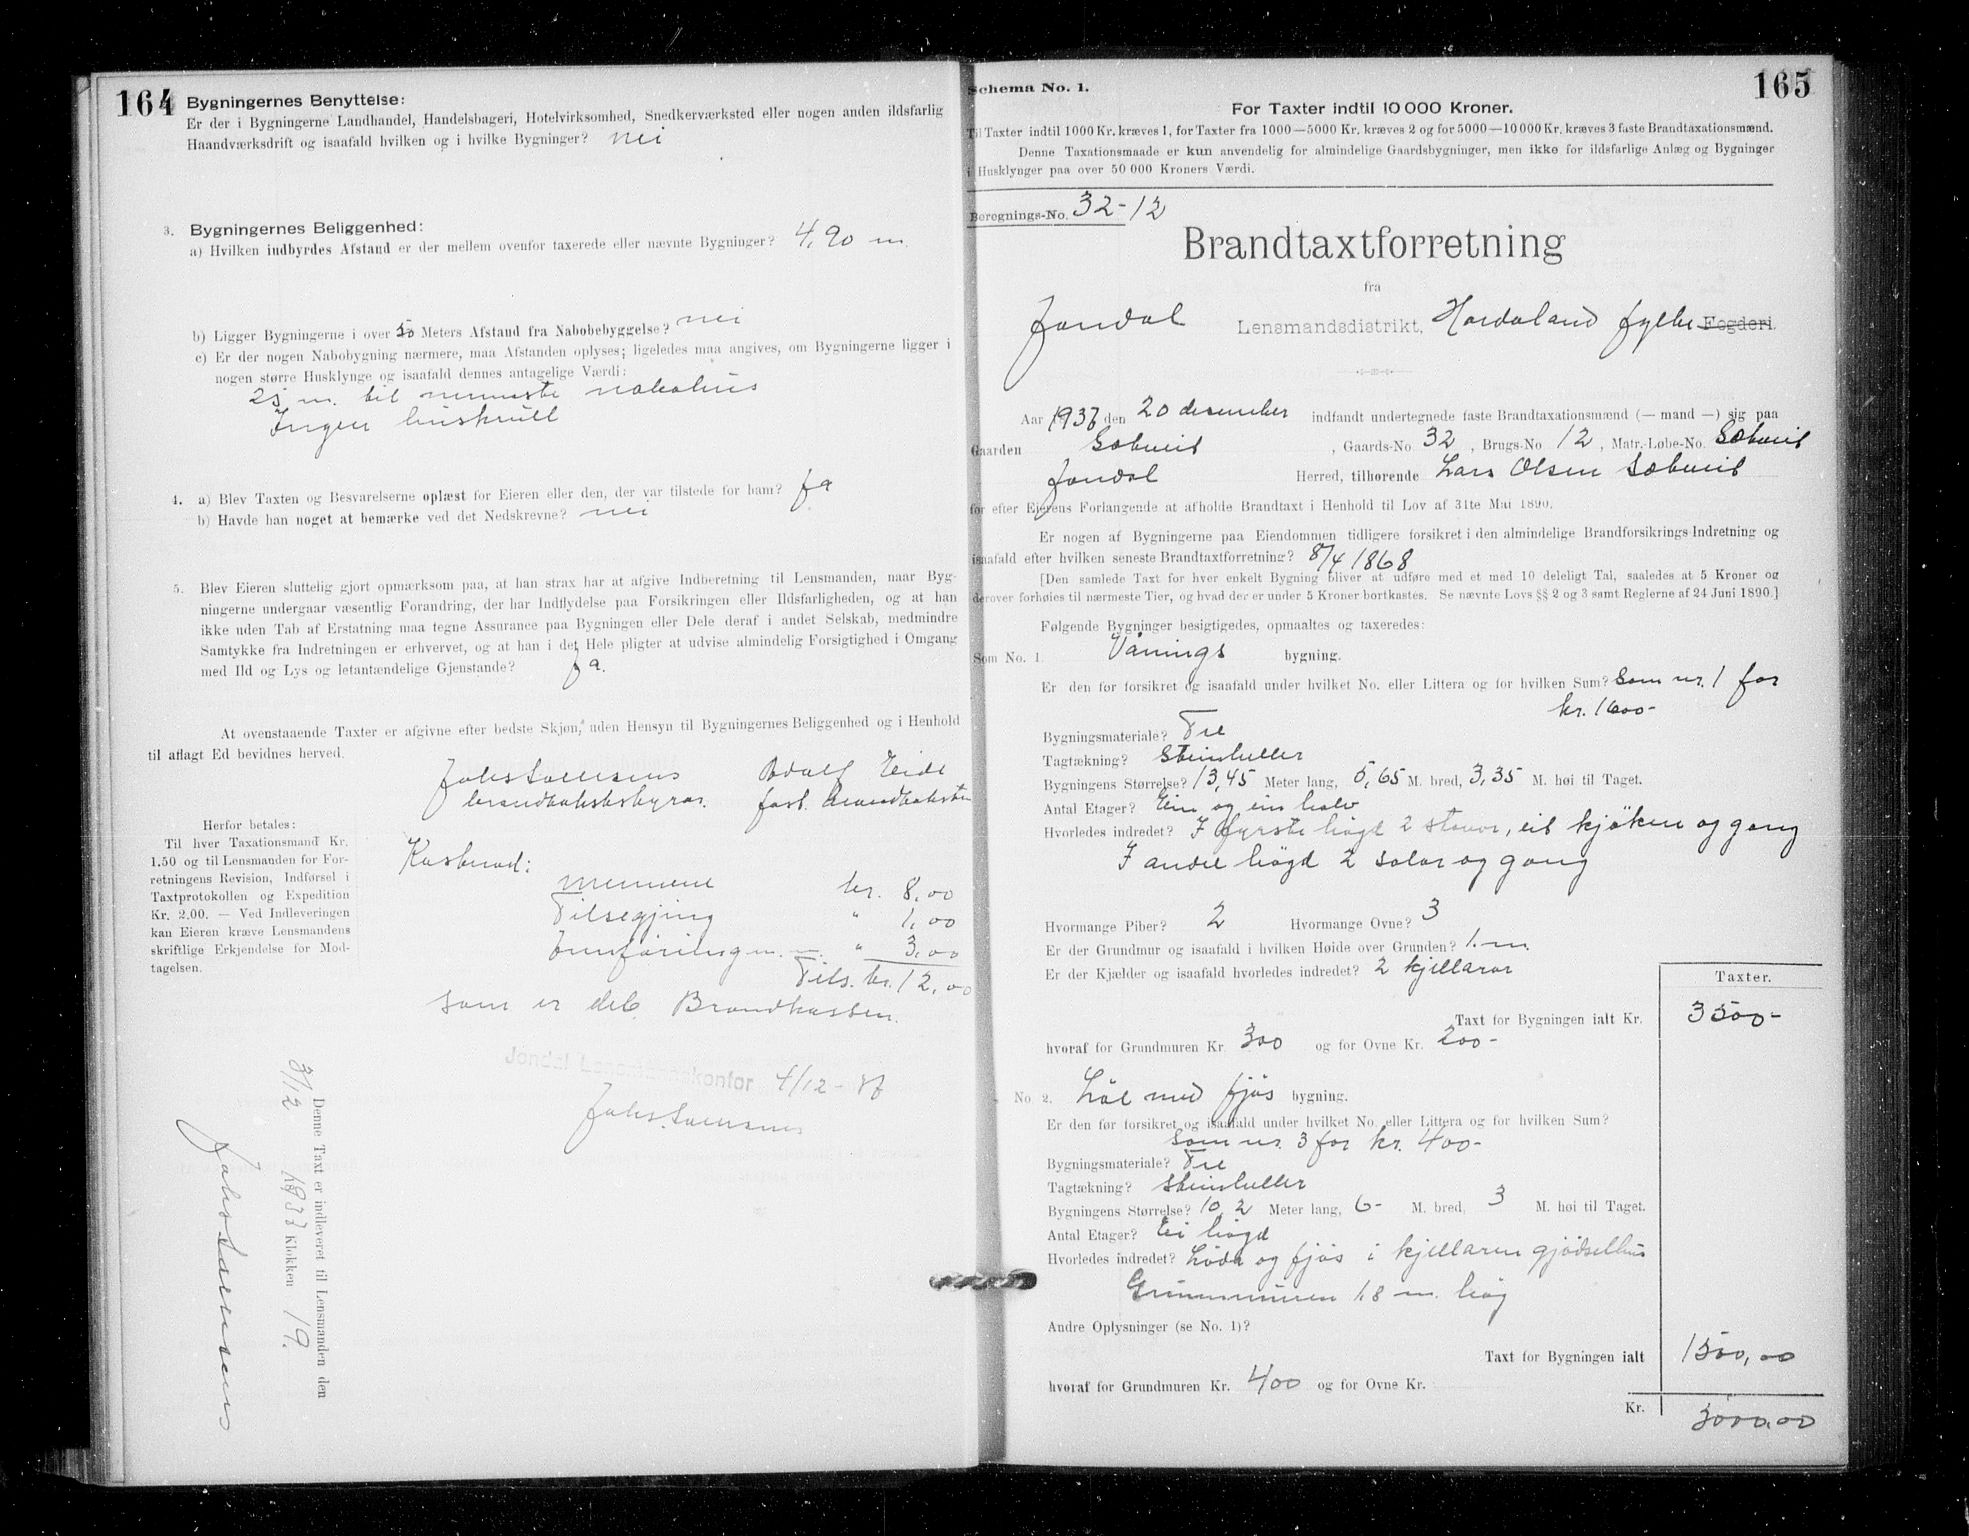 164
Bygningernes Benyttelse:
Er der i Bygningerne Landhandel, Handelsbageri, Hotelvirksomhed, Snedkerværksted eller nogen anden ildsfarlig
Haandværksdrift og isaafald hvilken og i hvilke Bygninger? nei
3. Bygningernes Beliggenhed:
a) Hvilken indbyrdes Afstand er der mellem ovenfor taxerede eller nævnte Bygninger? 4,90 m.
b) Ligger Bygningerne i over 50 Meters Afstand fra Nabobebyggelse? nei
c) Er der nogen Nabobygning nærmere, maa Afstanden oplyses; ligeledes maa angives, om Bygningerne ligger i
nogen større Husklynge og isaafald dennes antagelige Værdi:
25 m. til næmaste nabohus
Ingen huskrull
4. a) Blev Taxten og Besvarelserne oplæst for Eieren eller den, der var tilstede for ham? Ja
b) Havde han noget at bemærke ved det Nedskrevne? nei
5. Blev Eieren sluttelig gjort opmærksom paa, at han strax har at afgive Indberetning til Lensmanden, naar Byg-
ningerne undergaar væsentlig Forandring, der har Indflydelse paa Forsikringen eller Ildsfarligheden, og at han
ikke uden Tab af Erstatning maa tegne Assurance paa Bygningen eller Dele deraf i andet Selskab, medmindre
Samtykke fra Indretningen er erhvervet, og at han i det Hele pligter at udvise almindelig Forsigtighed i Omgang
med Ild og Lys og letantændelige Gjenstande? Ja.
At ovenstaaende Taxter er afgivne efter bedste Skjøn, uden Hensyn til Bygningernes Beliggenhed og i Henhold
til aflagt Ed bevidnes herved.
Adolf Eide
Herfor betales:
Til hver Taxationsmand Kr.
1.50 og til Lensmanden for For-
retningens Revision, Indførsel i
Taxtprotokollen og Expedition
Kr. 2.00. — Ved Indleveringen
kan Eieren kræve Lensmandens
skriftlige Erkjendelse for Mod-
tagelsen.
Kostnad:
Mennene kr. 8,00
Tilsegjing " 1,00
Innføring m. m. " 3,00
Tils. kr. 12,00
som er det. Brandkassen.
Jondal Lensmannskontor 4/12-37
Denne Taxt er indleveret til Lensmanden den
3/12 1937 Klokken 19.
165
Schema No. 1.
For Taxter indtil 10 000 Kroner.
Til Taxter indtil 1000 Kr. kræves 1, for Taxter fra 1000—5000 Kr. kræves 2 og for 5000—10 000 Kr. kræves 3 faste Brandtaxationsmænd.
Denne Taxationsmaade er kun anvendelig for almindelige Gaardsbygninger, men ikke for ildsfarlige Anlæg og Bygninger
i Husklynger paa over 50 000 Kroners Værdi.
Beregnings-No. 32-12
Brandtaxtforretning
fra
Jondal Lensmandsdistrikt, Hordaland fylke Fogderi.
Aar 1937 den 20 desember indfandt undertegnede faste Brandtaxationsmænd (— mand —) sig paa
Gaarden Sæbveit, Gaards-No. 32, Brugs-No 12, Matr.-Løbe-No. Sæbveit
Jondal Herred, tilhørende Lars Olsen Sæbveit
for efter Eierens Forlangende at afholde Brandtaxt i Henhold til Lov af 31te Mai 1890.
Er nogen af Bygningerne paa Eiendommen tidligere forsikret i den almindelige Brandforsikrings-Indretning og
isaafald efter hvilken seneste Brandtaxtforretning? 8/4 1868
[Den samlede Taxt for hver enkelt Bygning bliver at udføre med et med 10 deleligt Tal, saaledes at 5 Kroner og
derover forhøies til nærmeste Tier, og hvad der er under 5 Kroner bortkastes. Se nævnte Lovs §§ 2 og 3 samt Reglerne af 24 Juni 1890.]
Følgende Bygninger besigtigedes, opmaaltes og taxeredes:
Som No. 1. Vånings bygning.
Er den før forsikret og isaafald under hvilket No. eller Littera og for hvilken Sum? Som nr. 1 for
kr. 1600-
Bygningsmateriale? Tre
Tagtækning? Steinheller
Bygningens Størrelse? 13,45 Meter lang, 5,65 M. bred, 3,35 M. høi til Taget.
Antal Etager? Ein og ein halv
Hvorledes indredet? I fyrste högd 2 stovor, eit kjöken og gang
I andre högd 2 salar og gang
Hvormange Piber? 2 Hvormange Ovne? 3
Er der Grundmur og isaafald i hvilken Høide over Grunden? 1 m.
Er der Kjælder og isaafald hvorledes indredet? 2 kjellarar
Taxter.
Taxt for Bygningen ialt Kr. 3500-
hvoraf for Grundmuren Kr. 300 og for Ovne Kr. 200-
No. 2. Löe med fjös bygning.
Er den før forsikret og isaafald under hvilket No. eller Littera og for hvilken Sum?
Som nr. 3 for kr. 400-
Bygningsmateriale? Tre
Tagtækning? Steinheller
Bygningens Størrelse? 10,2 Meter lang, 6- M. bred, 3 M. høi til Taget.
Antal Etager? Ei högd
Hvorledes indredet? Löda og fjös i kjellaren gjödselhus
Grunnmuren 1,8 m. hög
Andre Oplysninger (se No. 1)?
Taxt for Bygningen ialt 1500,00
hvoraf for Grundmuren Kr. 400 og for Ovne Kr.
Kr. 5000,00